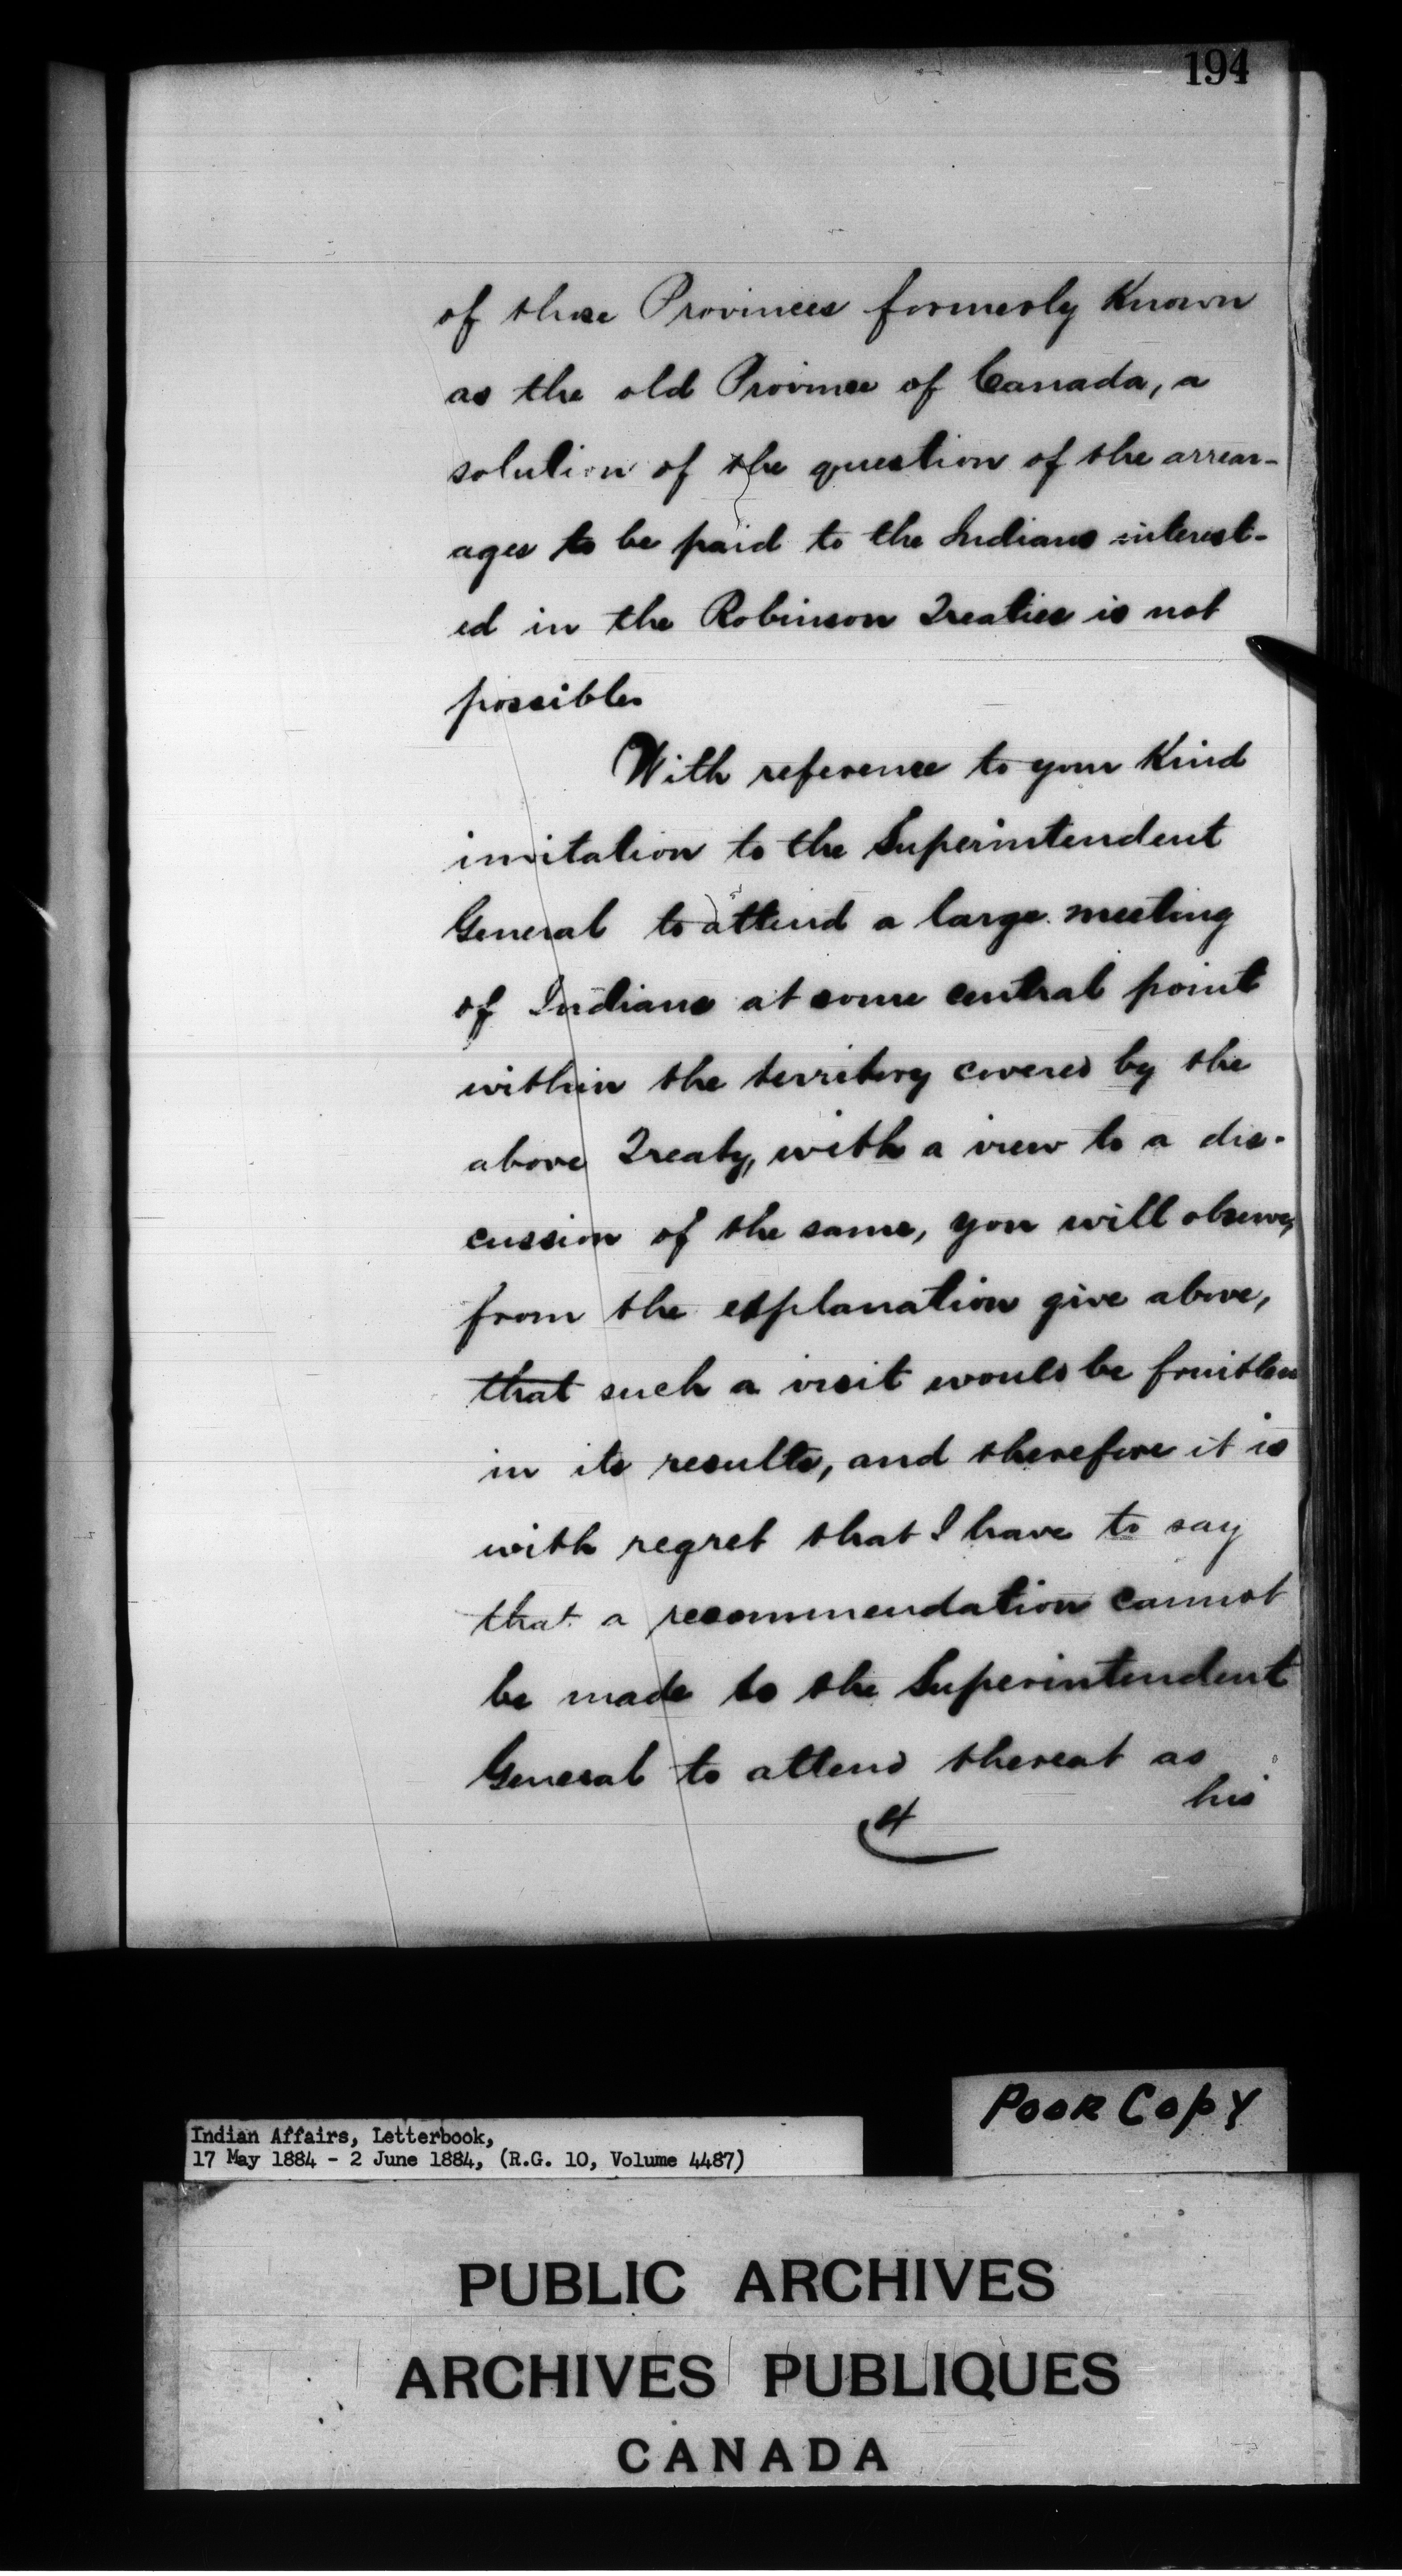 194
of those Provinces formerly Known
as the old Province of Canada, a
solution of the question of the arrear-
ages to be paid to the Indians interest-
ed in the Robinson Treaties is not
possible.
With reference to your Kind
invitation to the Superintendent
General to attend a large meeting
of Indians at some central point
within the territory covered by the
above Treaty, with a view to a dis-
cussion of the same, you will observe,
from the explanation give above,
that such a visit would be fruitless
in its results, and therefore it is
with regret that I have to say
that a recommendation cannot
be made to the Superintendent
General to attend thereat as
his
4
POOR COPY
Indian Affairs, Letterbook,
17 May 1884 - 2 June 1884, (R.G. 10, Volume 4487)
PUBLIC ARCHIVES
ARCHIVES PUBLIQUES
CANADA